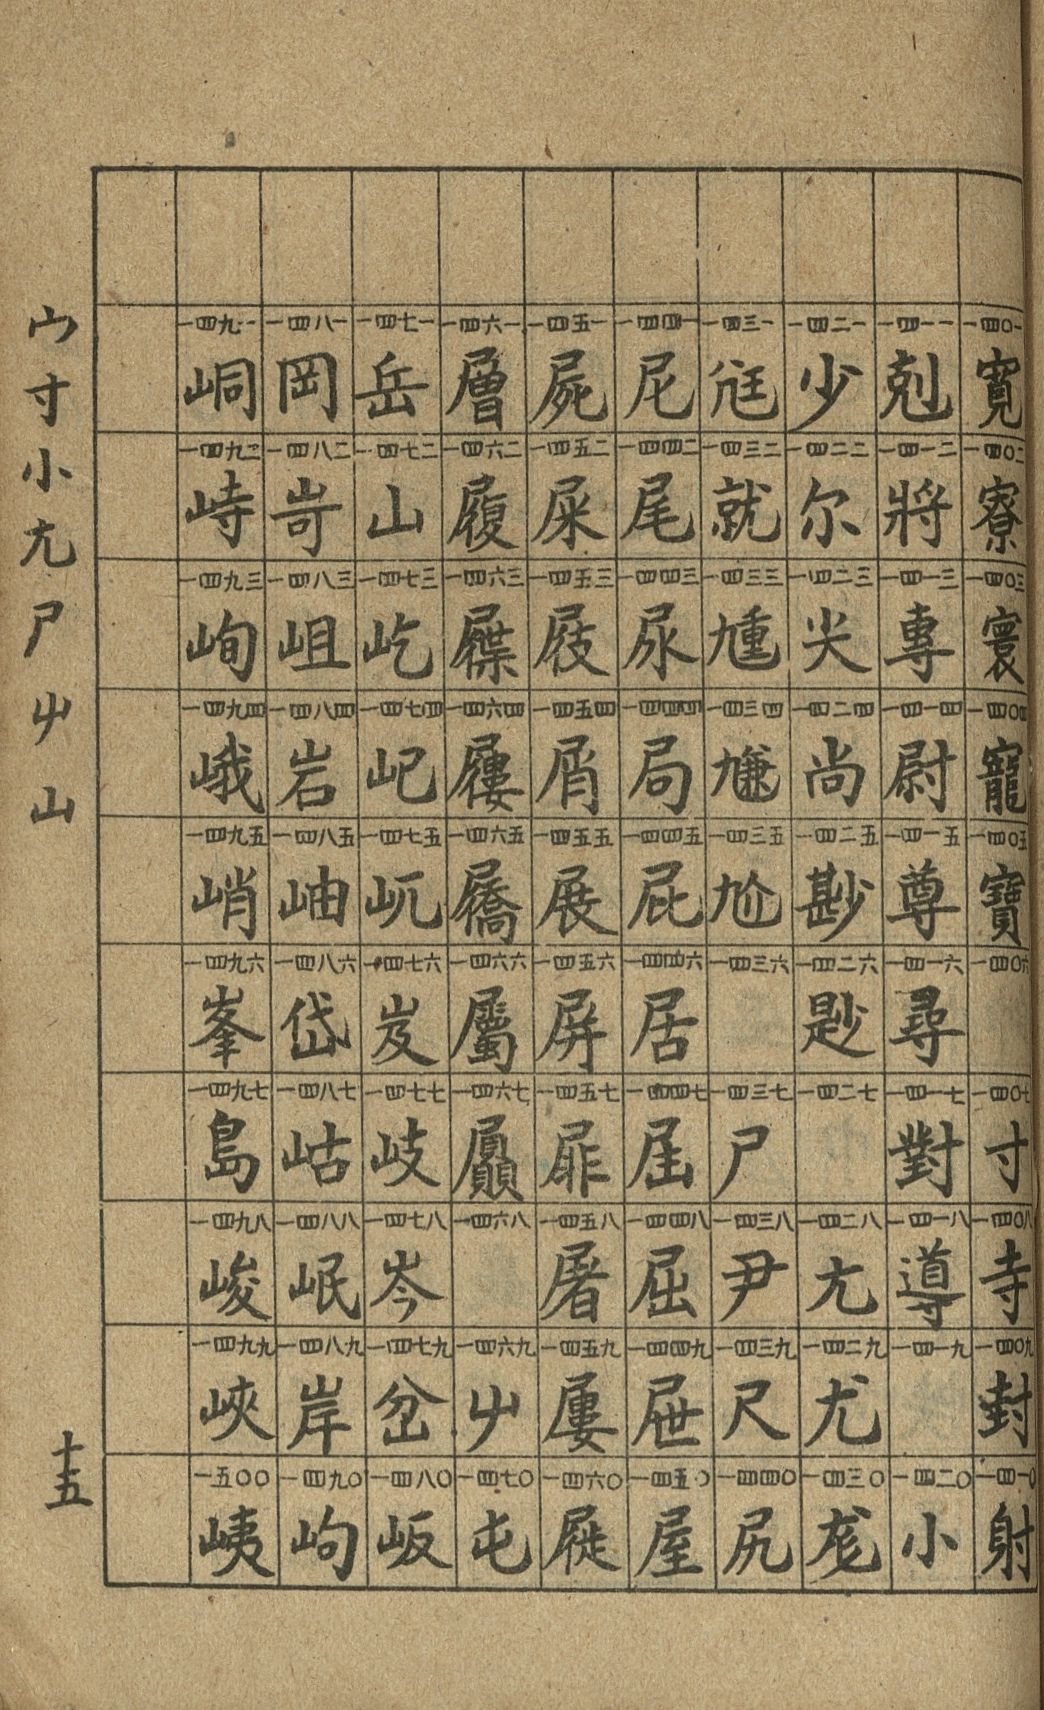 一四〇一 寬 一四〇二 寮 一四〇三 寰 一四〇四 寵 一四〇五 寶 一四〇六 一四〇七 寸 一四〇八 寺 一四〇九 封 一四一〇 射
一四一一 剋 一四一二 將 一四一三 專 一四一四 尉 一四一五 尊 一四一六 尋 一四一七 對 一四一八 導 一四一九 一四二〇 小
一四二一 少 一四二二 尔 一四二三 尖 一四二四 尚 一四二五 尠 一四二六 尟 一四二七 一四二八 尢 一四二九 尤 一四三〇 尨
一四三一 尪 一四三二 就 一四三三 尰 一四三四 尲 一四三五 尬 一四三六 一四三七 尸 一四三八 尹 一四三九 尺 一四四〇 尻
一四四一 尼 一四四二 尾 一四四三 尿 一四四四 局 一四四五 屁 一四四六 居 一四四七 屆 一四四八 屈 一四四九 屉 一四五〇 屋
一四五一 屍 一四五二 屎 一四五三 屐 一四五四 屑 一四五五 展 一四五六 屏 一四五七 屝 一四五八 屠 一四五九 屢 一四六〇 屣
一四六一 層 一四六二 履 一四六三 屧 一四六四 屨 一四六五 屩 一四六六 屬 一四六七 屭 一四六八 一四六九 屮 一四七〇 屯
一四七一 岳 一四七二 山 一四七三 屹 一四七四 屺 一四七五 岏 一四七六 岌 一四七七 岐 一四七八 岑 一四七九 岔 一四八〇 岅
一四八一 岡 一四八二 岢 一四八三 岨 一四八四 岩 一四八五 岫 一四八六 岱 一四八七 岵 一四八八 岷 一四八九 岸 一四九〇 岣
一四九一 峒 一四九二 峙 一四九三 峋 一四九四 峨 一四九五 峭 一四九六 峯 一四九七 島 一四九八 峻 一四九九 峽 一五〇〇 峓
宀寸小尢尸屮山 十五